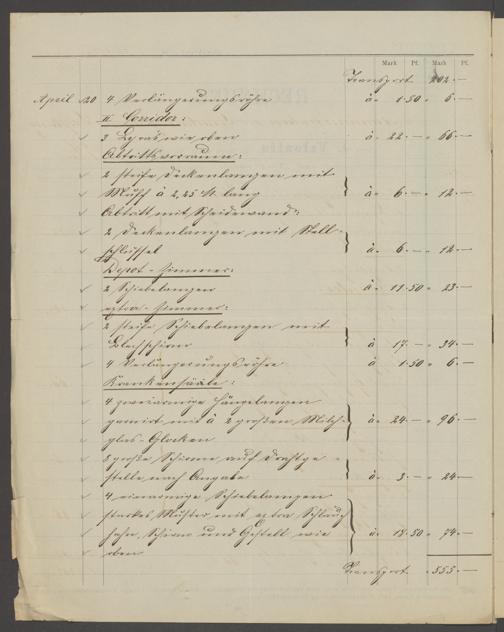 Mark Pf. Mark Pf.
Transport 202.—
April 20 4 Verlängerungsrohre à 1.50 6.—
II Corridor:
3 Lyras wie oben à 22.— 66.—
Abtrittsvorraum:
2 steife Deckenlampen mit
Muff à 2,25 M. lang à 6.— 12.—
Abtritt mit Scheidewand:
2 Deckenlampen mit Stell-
schlüssel à 6.— 12.—
Depot-Zimmer:
2 Schiebelampen à 11.50 23.—
extra-Zimmer:
2 steife Schiebelampen mit
Blechschirm à 17.— 34.—
4 Verlängerungsrohre à 1.50 6.—
Krankensääle:
4 zweiarmige Hängelampen
garnirt mit à 2 großen Milch-
glas-Glocken à 24.— 96.—
große Schirme auf Drahtge-
stelle nach Angabe à 3.— 24.—
4 einarmige Schiebelampen
starkes Muster mit extra Schlauch-
hahn, Schirm und Gestell wie à 18.50 74.—
oben
Transport 555.—